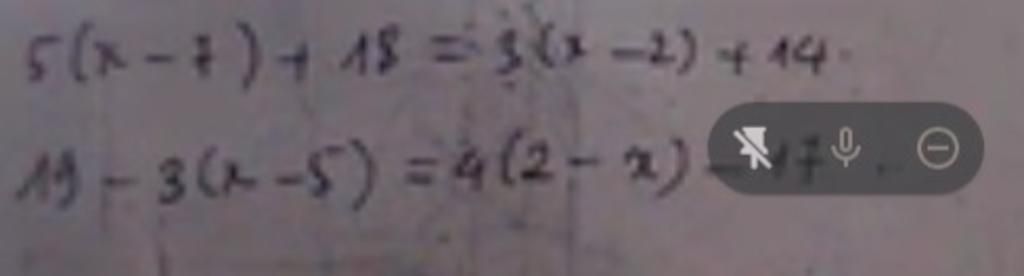 5(x - 7) + 18 = 3(x - 2) + 14.
19 - 3(x - 5) = 4(2 - x) - 17.